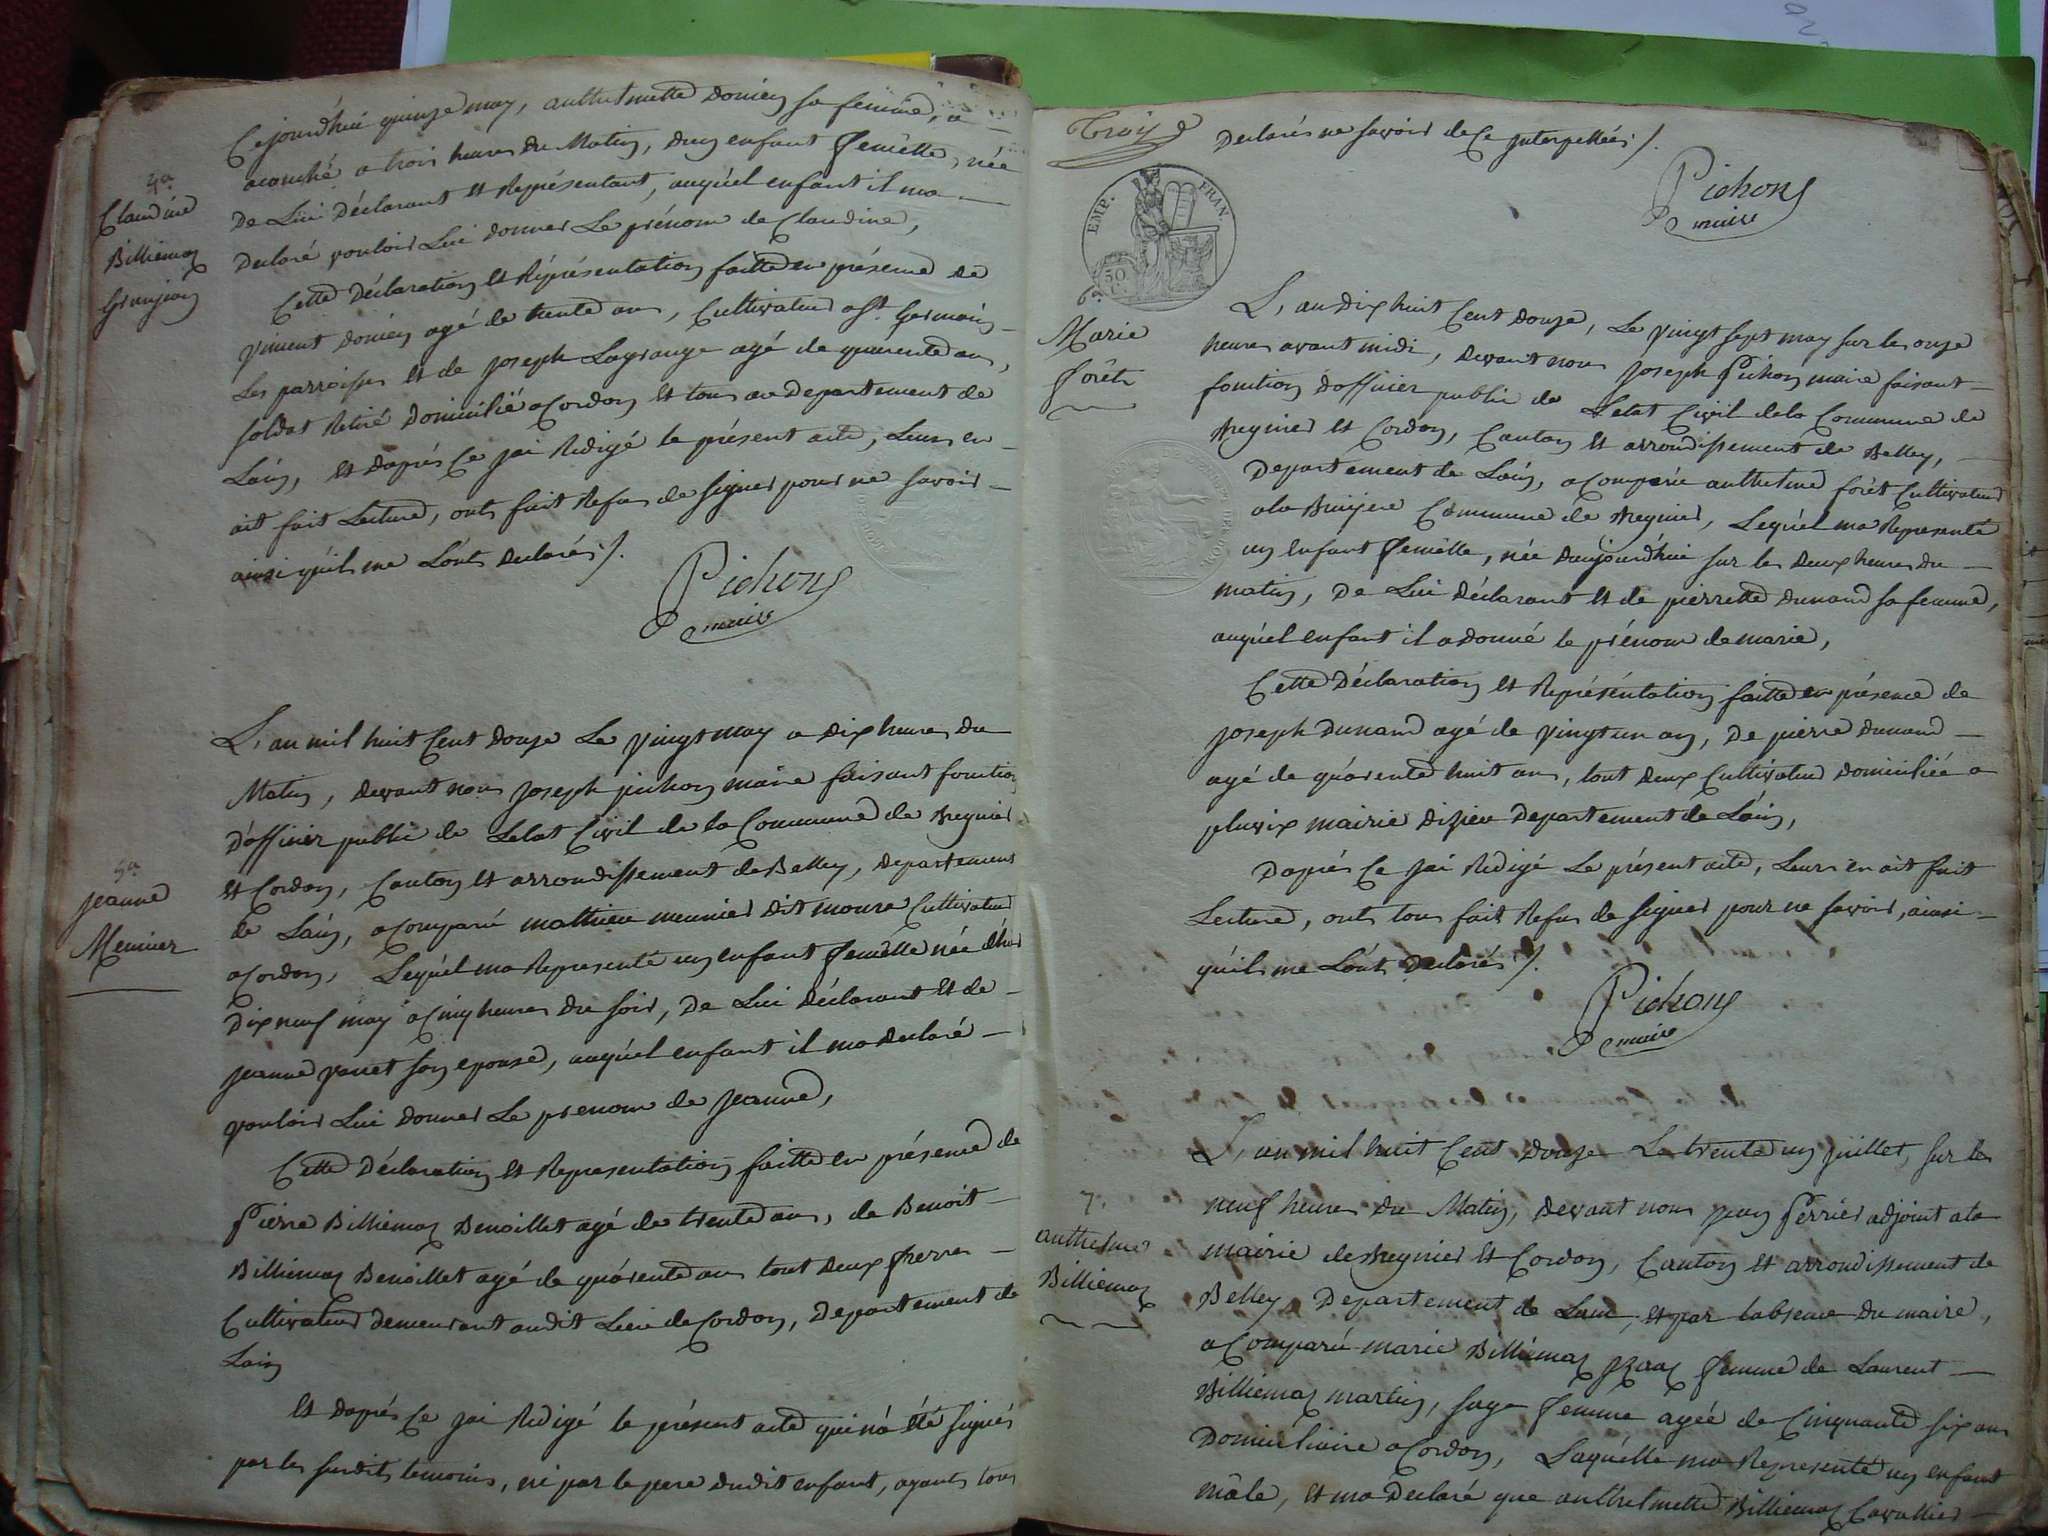 Cejourd'hui quinze may, anthelmette Domeñ sa femme, a
acouché a trois heures du Matin, d'un enfant femelle, née
De Lui Déclarant et Représentant, auquel enfant il ma
Declaré vouloir Lui donner Le prénom de Claudine,
4e
Claudine
Billiemaz
Cette Déclaration et Réprésentation faitte en présence de
vincent agé de trente ans, Cultivateur a St. Germain
Les parroisses et de joseph Lagrange agé de quarente ans,
soldat Retiré Domicilié a Cordon et tous au departement de
Lain, et daprés Ce jai Redigé le présent acte, Leurs en
ait fait Lecture, onts fait Refus de signer pour ne savoir
ainsi qu'ils me L'onts Declarés ./.
Pichon
maire
L'an mil huit Cent douze Le vingt may a dix heures du
Matin, devant nous joseph pichon maire faisant fonction
D'officier public de Letat Civil de la Commune de Bregnier
et Cordon, Canton et arrondissement de Belley, departement
de Lain, a Comparu mathieu meunier dit moure Cultivateur
a Cordon, Lequel ma Representé un enfant femelle née d'hier
Dix neuf may a Cinq heures du soir, De Lui Déclarant et de
jeanne son epouse, auquel enfant il ma declaré
vouloir Lui donner Le prenom de jeanne,
5e
jeanne
Meunier
Cette Déclaration et Representation faitte en présence de
Pierre Billiemaz Benoillet agé de trente ans, de Benoit
Billiemaz Benoillet agé de quarente ans tout deux frerres
Cultivateur demeurant audit Lieu de Cordon, Departement de
Lain
et daprés Ce jai Redigé le présent acte qui na été signés
par les susdits temoins, ni par le pere dudit enfant, ayants tous
Trois
Declarés ne savoir de Ce Interpellés ./.
Pichon
maire
EMP. FRAN.
50
C.
6e
Marie
forêt
L'an dix huit Cent douze, Le vingt sept may sur les onze
heures avant midi, devant nous joseph Pichon maire faisant
fonction d'officier public de Letat Civil de la Commune de
Bregnier et Cordon, Canton et arrondissement de Belley,
Departement de Lain, a Comparu anthelme forêt Cultivateur
a la Bruyere Commune de Bregnier, Lequel ma Representé
un enfant femelle, née daujourd'hui sur les deux heures du
matin, De Lui Déclarant et de pierrette dunand sa femme,
auquel enfant il a donné le prénom de marie,
Cette Déclaration et Représéntation faitte en présence de
joseph dunand agé de vingt un an, De pierre dunand
agé de quarente huit ans, tout deux Cultivateur domicilié a
mairie Departement de Lain,
Daprés Ce jai Redigé Le présent acte, Leurs en ait fait
Lecture, onts tous fait Refus de signer pour ne savoir, ainsi
qu'ils me L'onts Declarés ./.
Pichon
maire
L'an mil huit Cent douze Le trente un juillet, sur les
neuf heures du Matin, devant nous jean Perrier adjoint a la
mairie de Bregnier et Cordon, Canton et arrondissement de
Belley, Departement de Lain, et par labsence du maire,
a Comparu marie Billiemaz femme de Laurent
Billiemaz martin, sage femme agée de Cinquante six ans
Domiciliaire a Cordon, Laquelle ma Representé un enfant
mâle, et ma Declaré que anthelmette Billiemaz Cavallier
7.
anthelme
Billiemaz